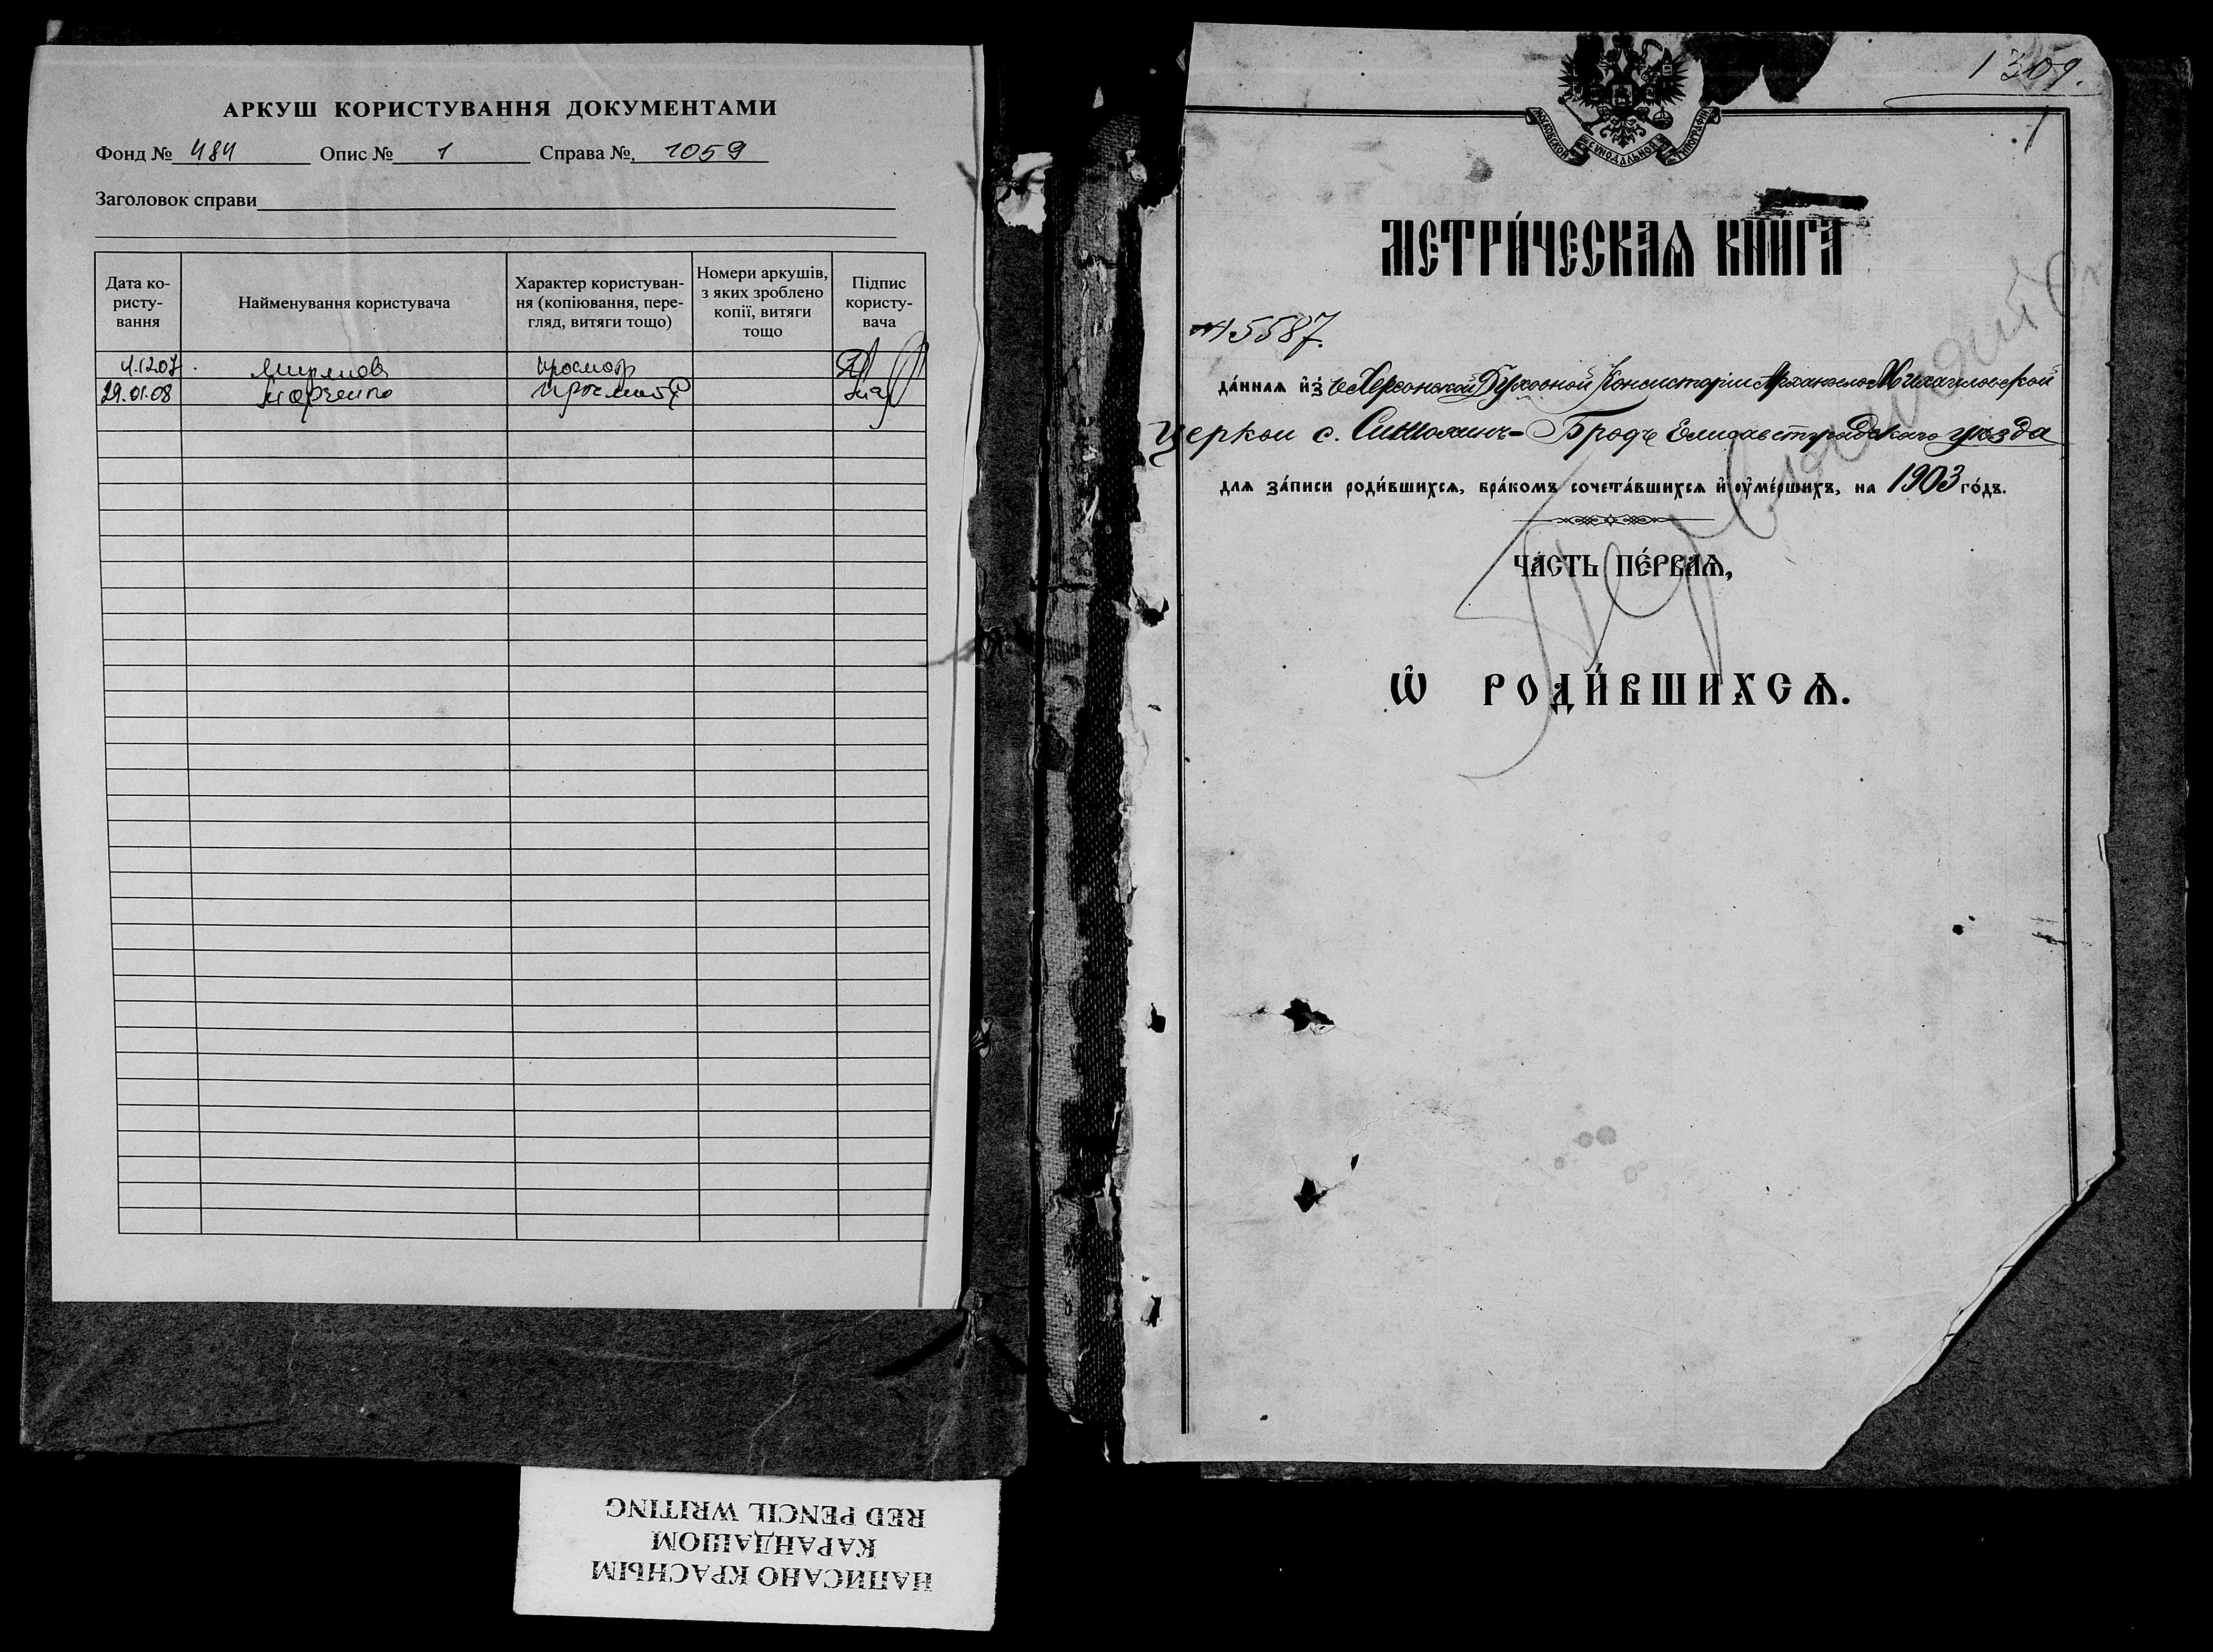 АРКУШ КОРИСТУВАННЯ ДОКУМЕНТАМИ
Фонд № 484 Опис № 1 Справа № 1059
Заголовок справи
Дата ко-
ристу-
вання
Найменування користувача
Характер користуван-
ня (копіювання, пере-
гляд, витяги тощо)
Номери аркушів,
з яких зроблено
копії, витяги
тощо
Підпис
користу-
вача
4.12.07 просмотр
29.01.08 просмотр
1309.
1
МОСКОВСКОЙ СѴНОДАЛЬНОЙ ТИПОГРАФІИ
МЕТРИ́ЧЕСКАѦ КНИ́ГА
№ 5587.
да́ннаѧ и҆з̾ Херсонской Духовной Консисторіи Архангело-Михайловской
церкви с. Синюхинъ-Бродъ Елисаветградскаго уѣзда
для за́писи роди́вшихсѧ, бра́комъ сочета́вшихсѧ и҆ ᲂу҆ме́ршихъ, на 1903 го́дъ.
ЧА́СТЬ ПЕ́РВАѦ,
Ѡ҆ РОДИ́ВШИХСѦ.
НАПИСАНО КРАСНЫМ
КАРАНДАШОМ
RED PENCIL WRITING